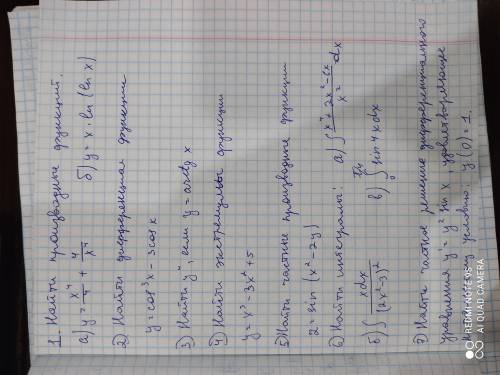 1. Найти производные функций.
а) y = x⁴/4 + 4/x⁴ б) y = x · ln (ln x)
2) Найти дифференциал функции
y = cos³x - 3cos x
3) Найти y″, если y = arctg x
4) Найти экстремумы функции
y = x³ - 3x² + 5
5) Найти частные производные функции
z = sin (x² - 2y)
6) Найти интегралы: а) ∫ (x⁴ + 2x² - 6x)/x² dx
б) ∫ xdx/(2x² - 3)² в) ∫ sin 4x dx
7) Найти частное решение дифференциального
уравнения y' = y² sin x, удовлетворяющее
условию y(0) = 1.
REDMI NOTE 9S
AI QUAD CAMERA